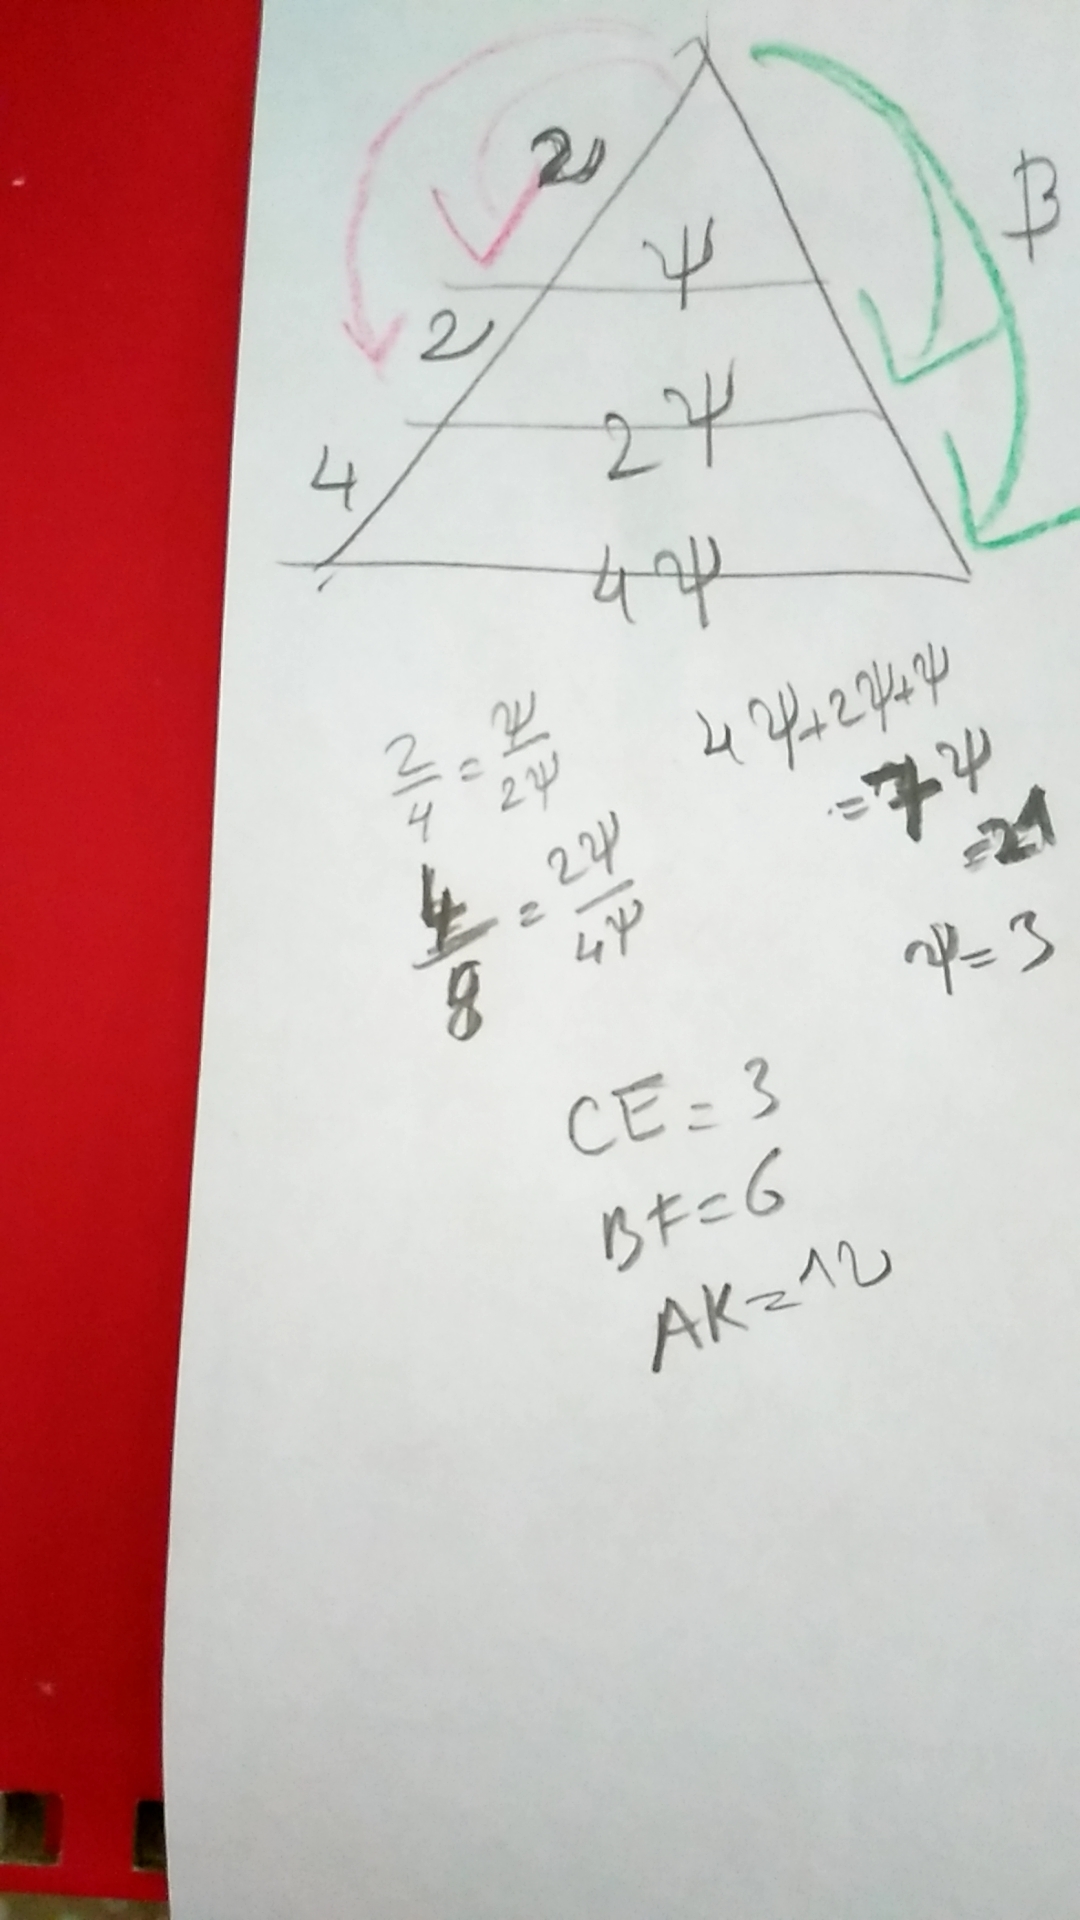 2
B
ψ
2
2ψ
4
4ψ
2/4 = ψ/2ψ
4ψ+2ψ+ψ
=7ψ
=21
4/8 = 2ψ/4ψ
ψ=3
CE=3
BF=6
AK=12